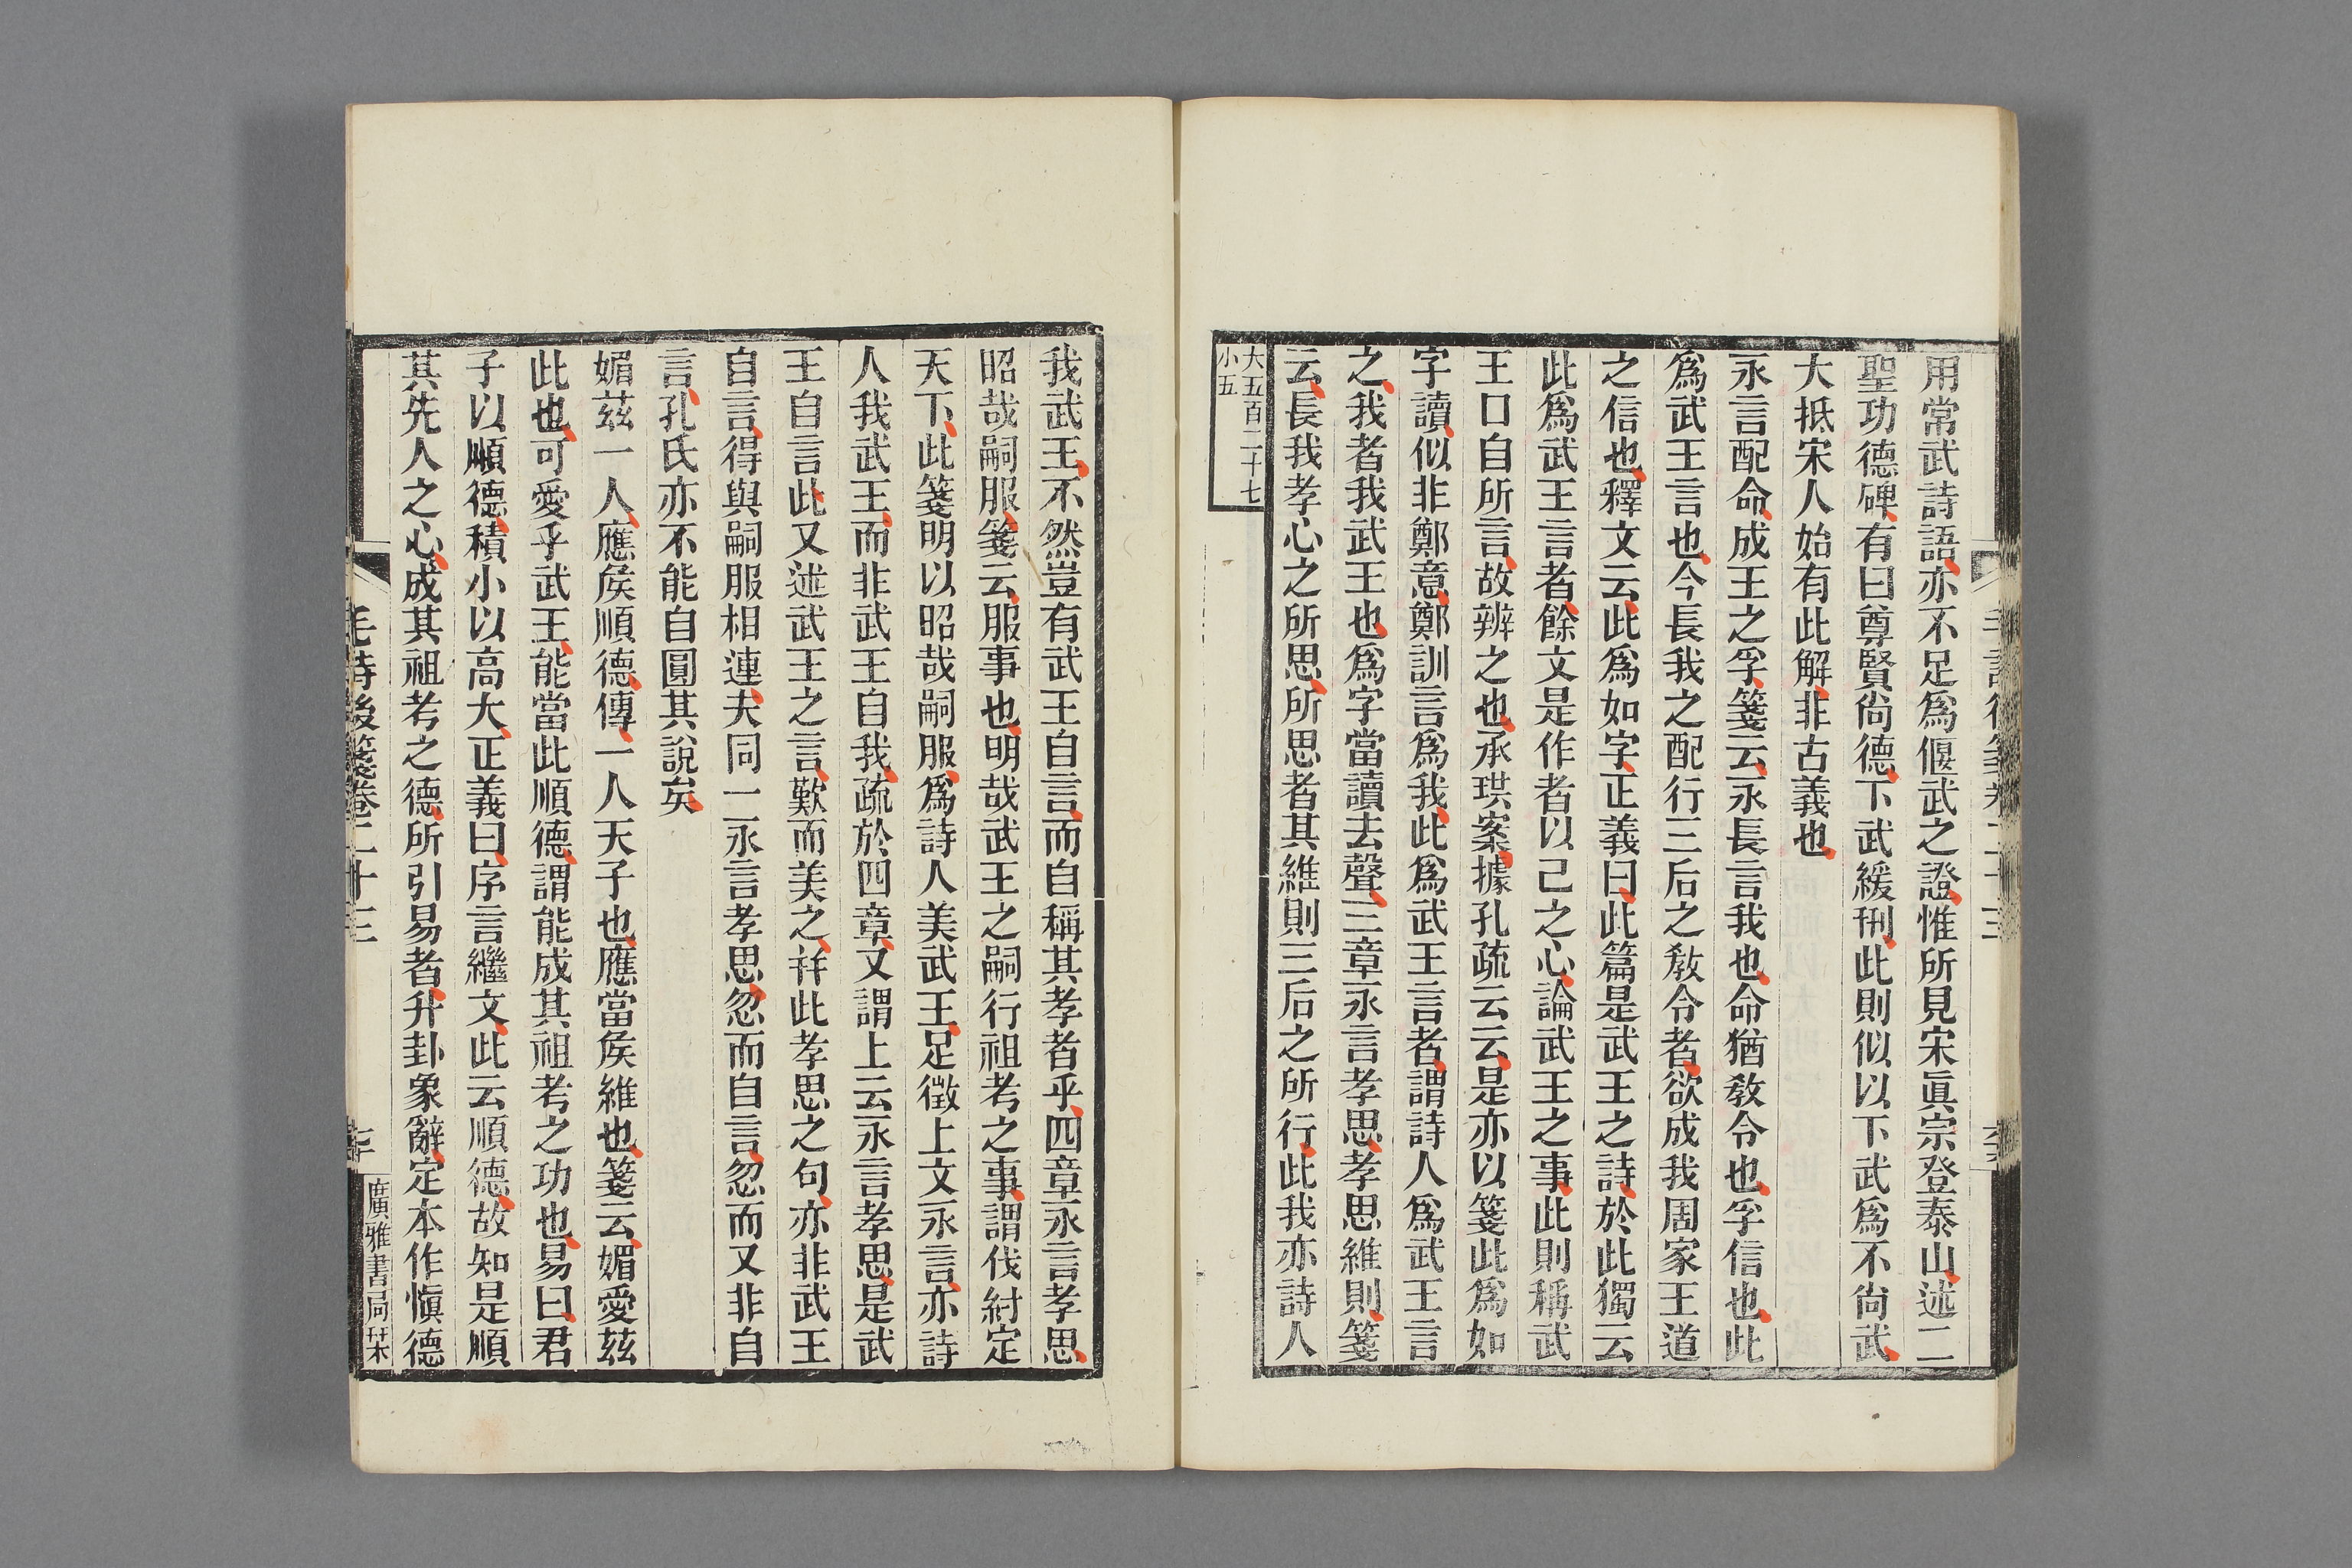 用常武詩語亦不足爲偃武之證惟所見宋眞宗登泰山述二
聖功德碑有曰尊賢尙德下武緩刑此則似以下武爲不尙武
大抵宋人始有此解非古義也
永言配命成王之孚箋云永長言我也命猶敎令也孚信也此
爲武王言也今長我之配行三后之敎令者欲成我周家王道
之信也釋文云此爲如字正義曰此篇是武王之詩於此獨云
此爲武王言者餘文是作者以己之心論武王之事此則稱武
王口自所言故辨之也承珙案據孔疏云云是亦以箋此爲如
字讀似非鄭意鄭訓言爲我此爲武王言者謂詩人爲武王言
之我者我武王也爲字當讀去聲三章永言孝思孝思維則箋
云長我孝心之所思所思者其維則三后之所行此我亦詩人
大五百二十七
小五
我武王不然豈有武王自言而自稱其孝者乎四章永言孝思
昭哉嗣服箋云服事也明哉武王之嗣行祖考之事謂伐紂定
天下此箋明以昭哉嗣服爲詩人美武王足徵上文永言亦詩
人我武王而非武王自我疏於四章又謂上云永言孝思是武
王自言此又述武王之言歎而美之幷此孝思之句亦非武王
自言得與嗣服相連夫同一永言孝思忽而自言忽而又非自
言孔氏亦不能自圓其說矣
媚茲一人應侯順德傳一人天子也應當侯維也箋云媚愛茲
此也可愛乎武王能當此順德謂能成其祖考之功也易曰君
子以順德積小以高大正義曰序言繼文此云順德故知是順
其先人之心成其祖考之德所引易者升卦象辭定本作愼德
毛詩後箋卷二十三
廣雅書局栞